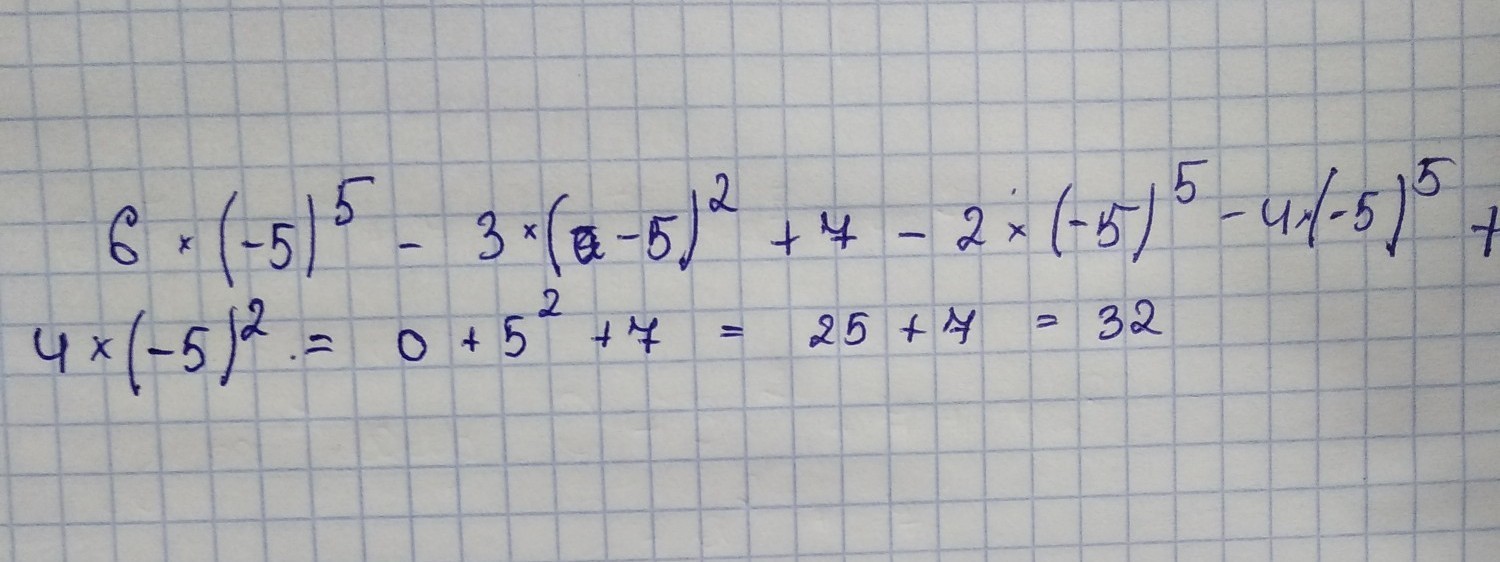 6 × (-5)^5 - 3 × (-5)^2 + 7 - 2 × (-5)^5 - 4 × (-5)^5 +
4 × (-5)^2 = 0 + 5^2 + 7 = 25 + 7 = 32